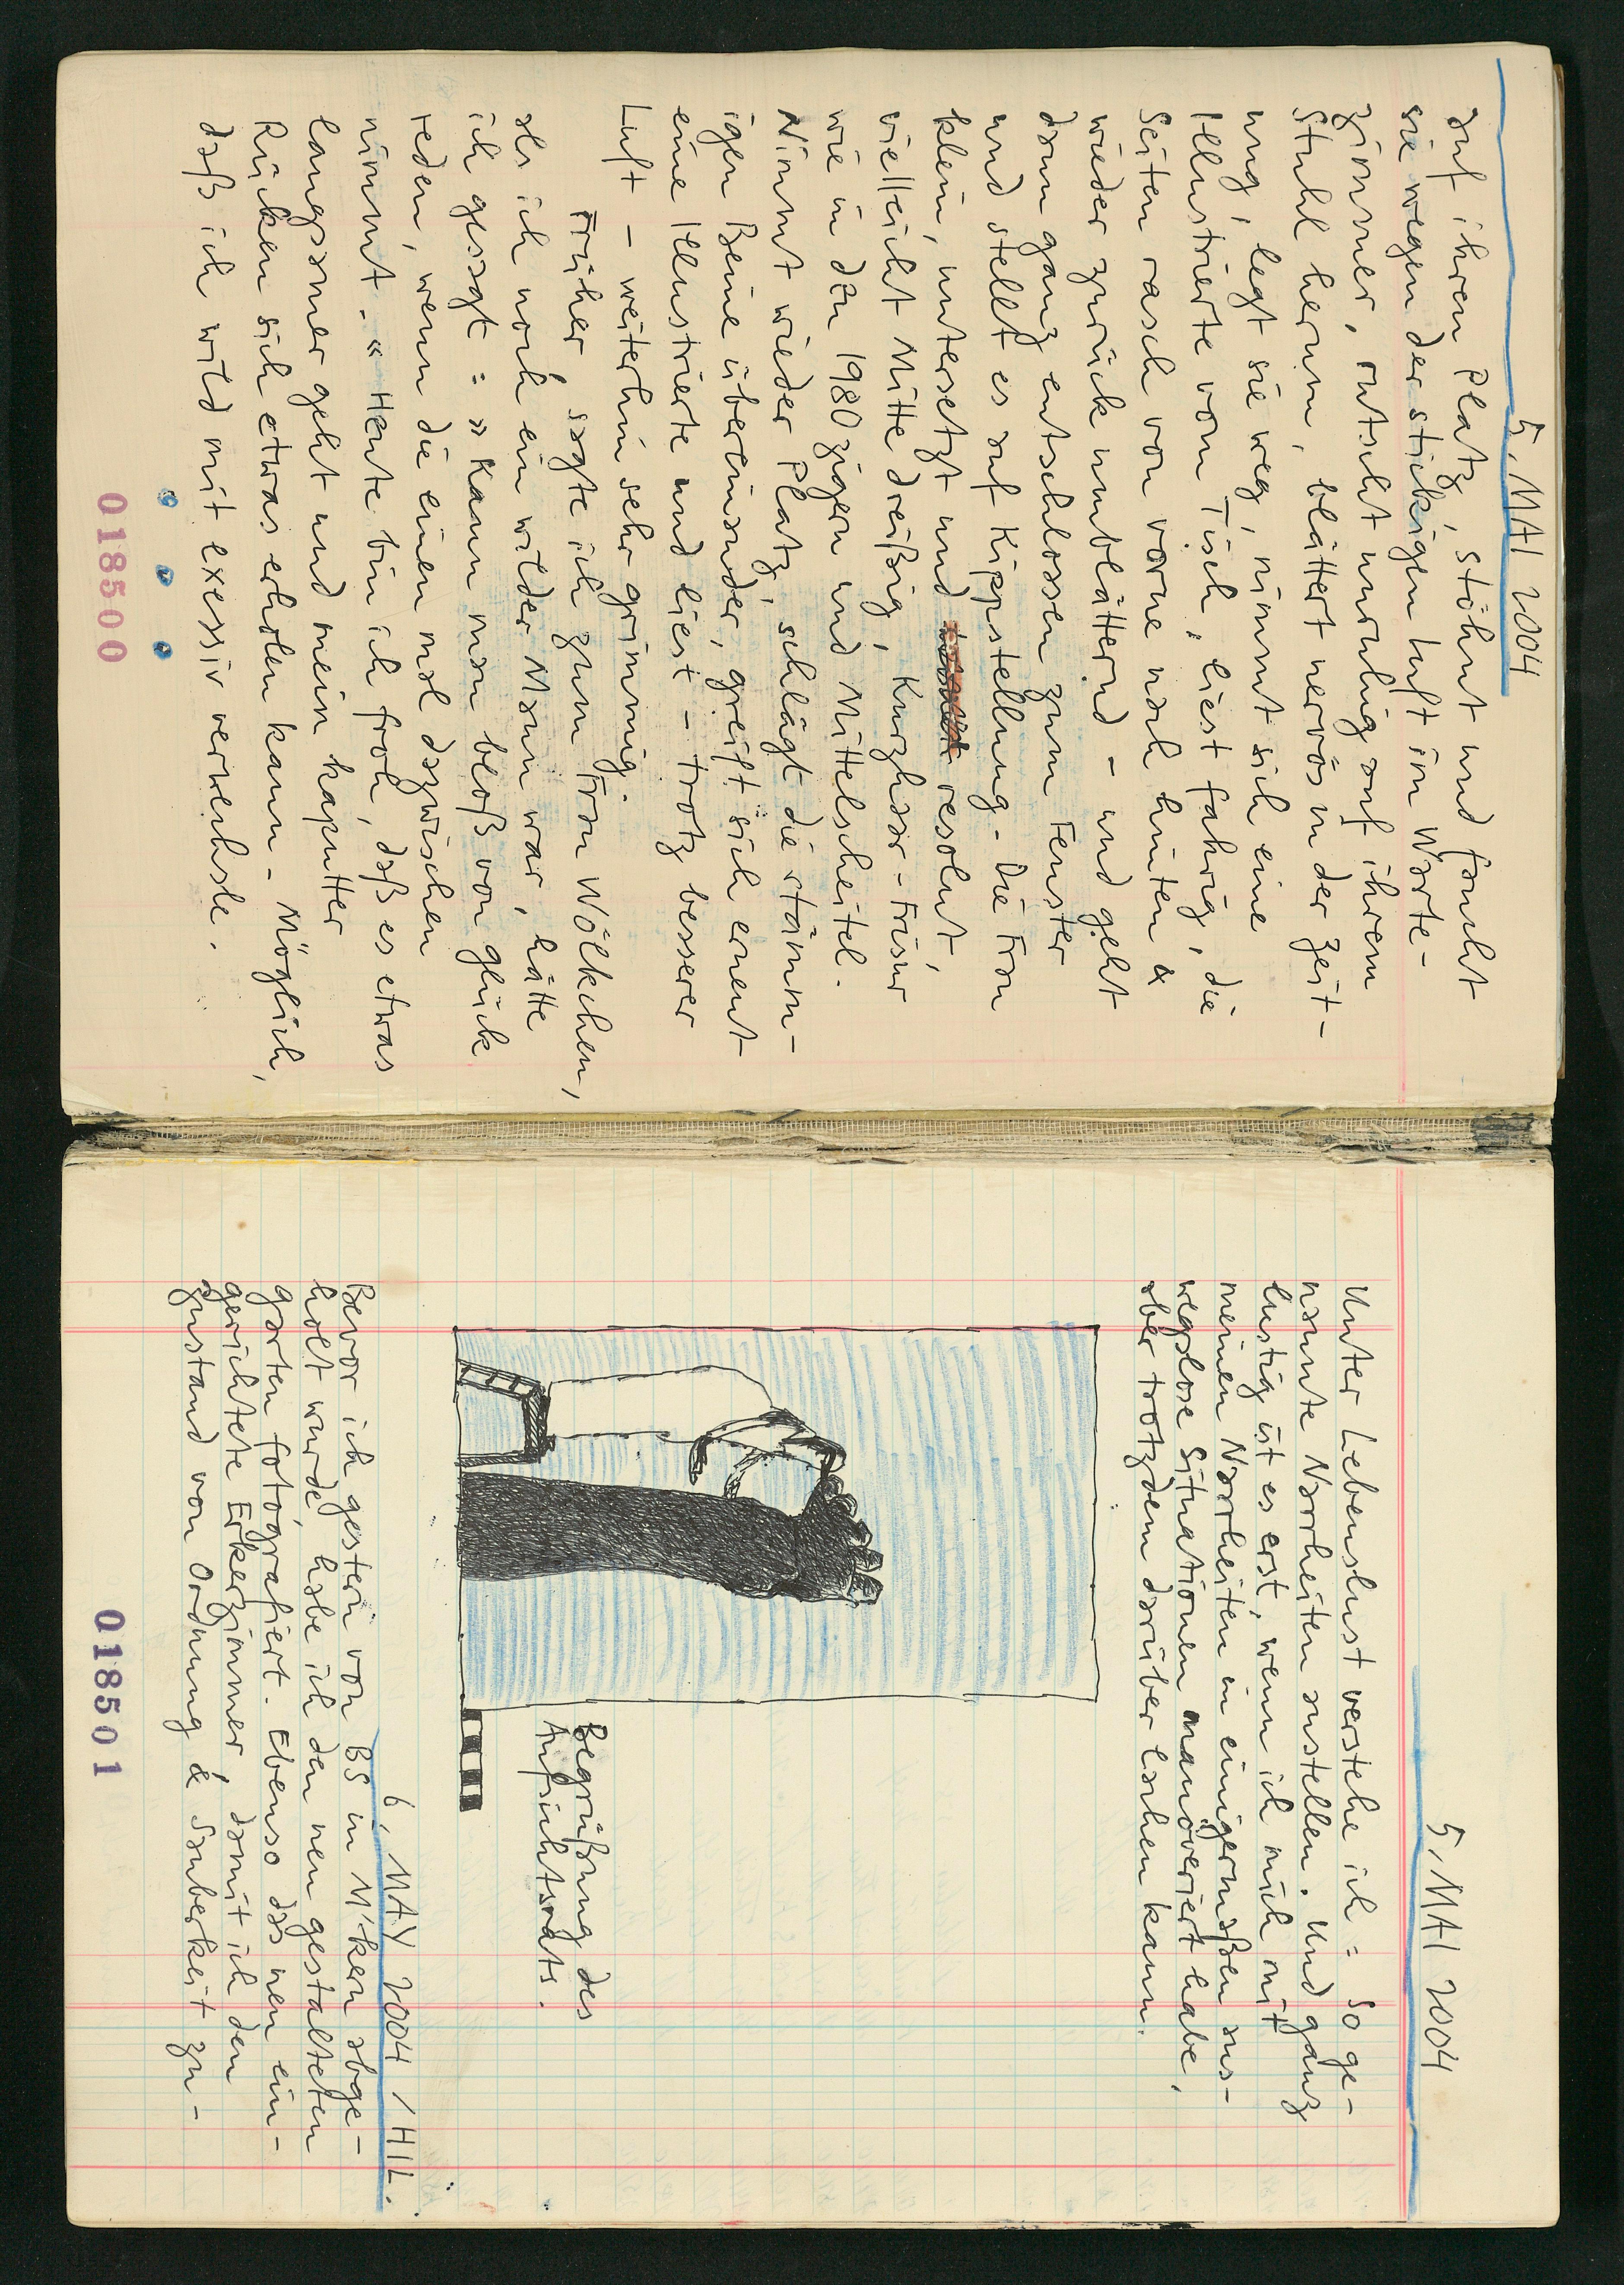 5. MAI 2004
auf ihren Platz, stöhnt und faucht
sie wegen der stickigen Luft im Warte-
zimmer, rutscht unruhig auf ihrem
Stuhl herum, blättert nervös in der Zeit-
ung, legt sie weg, nimmt sich eine
Illustrierte vom Tisch, liest fahrig, die
Seiten rasch von vorne nach hinten &
wieder zurück umblätternd – und geht
dann ganz entschlossen zum Fenster
und stellt es auf Kippstellung. Die Frau
klein, untersetzt und resolut,
vielleicht Mitte dreißig, Kurzhaar-Frisur
wie in den 1980zigern und Mittelscheitel.
Nimmt wieder Platz, schlägt die stämm-
igen Beine übereinander, greift sich erneut
eine Illustrierte und liest – trotz besserer
Luft – weiterhin sehr grimmig.
Früher, sagte ich zum Frau Wölkchen,
als ich noch ein wilder Mann war, hätte
ich gesagt: »Kann man bloß von Glück
reden, wenn die einen mal dazwischen
nimmt.« Heute bin ich froh, daß es etwas
langsamer geht und mein kaputter
Rücken sich etwas erholen kann. Möglich,
daß ich wild mit exessiv verwechsle.
018500
5. MAI 2004
Unter Lebenslust verstehe ich: So ge-
nannte Narrheiten anstellen. Und ganz
lustig ist es erst, wenn ich mich mit
meinen Narrheiten in einigermaßen aus-
weglose Situationen manöveriert habe,
aber trotzdem darüber lachen kann.
Begrüßung des
Aufsichtsrats.
6. MAY 2004 / HIL.
Bevor ich gestern von BS in M'ken abge-
holt wurde, habe ich den neu gestalteten
Garten fotografiert. Ebenso das neu ein-
gerichtete Erkerzimmer, damit ich den
Zustand von Ordnung & Sauberkeit zu-
018501